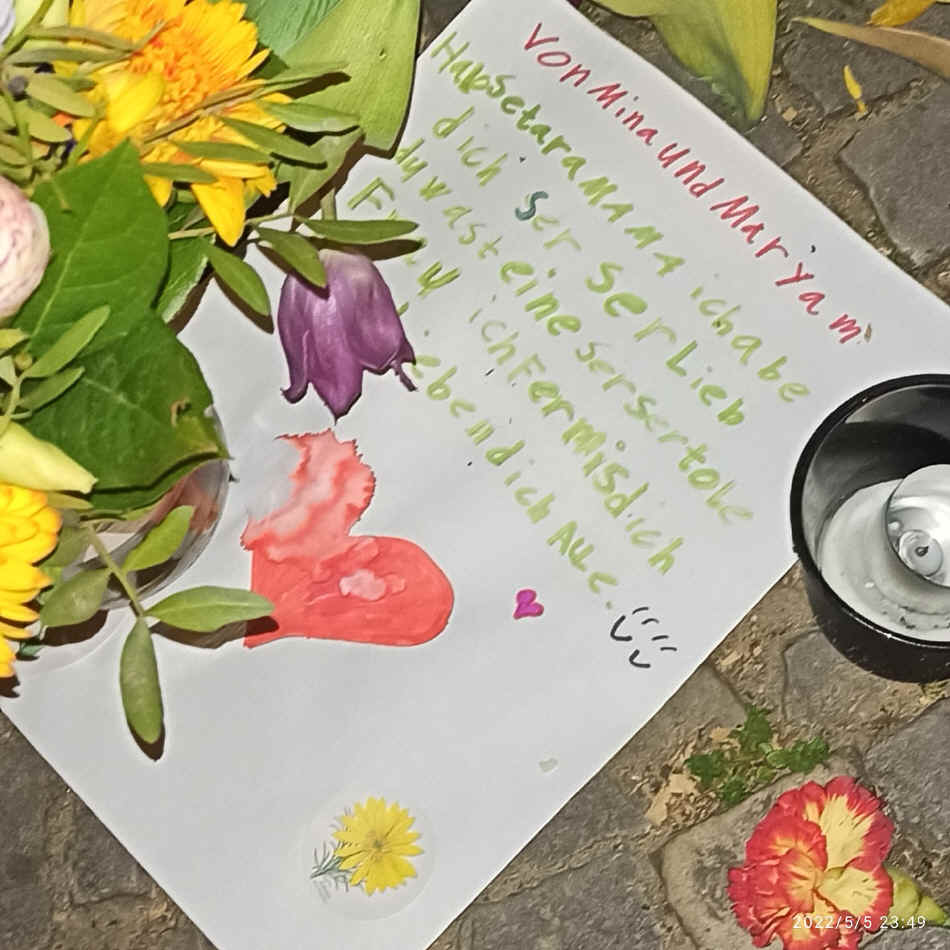 Von Mina und Mar'yam
Habsetara MAMA ich habe
dich Ser Ser Lieb
du warst eine Ser ser tohe
ich Fermis dich
eben dich ALLe.
2022/5/5 23:49